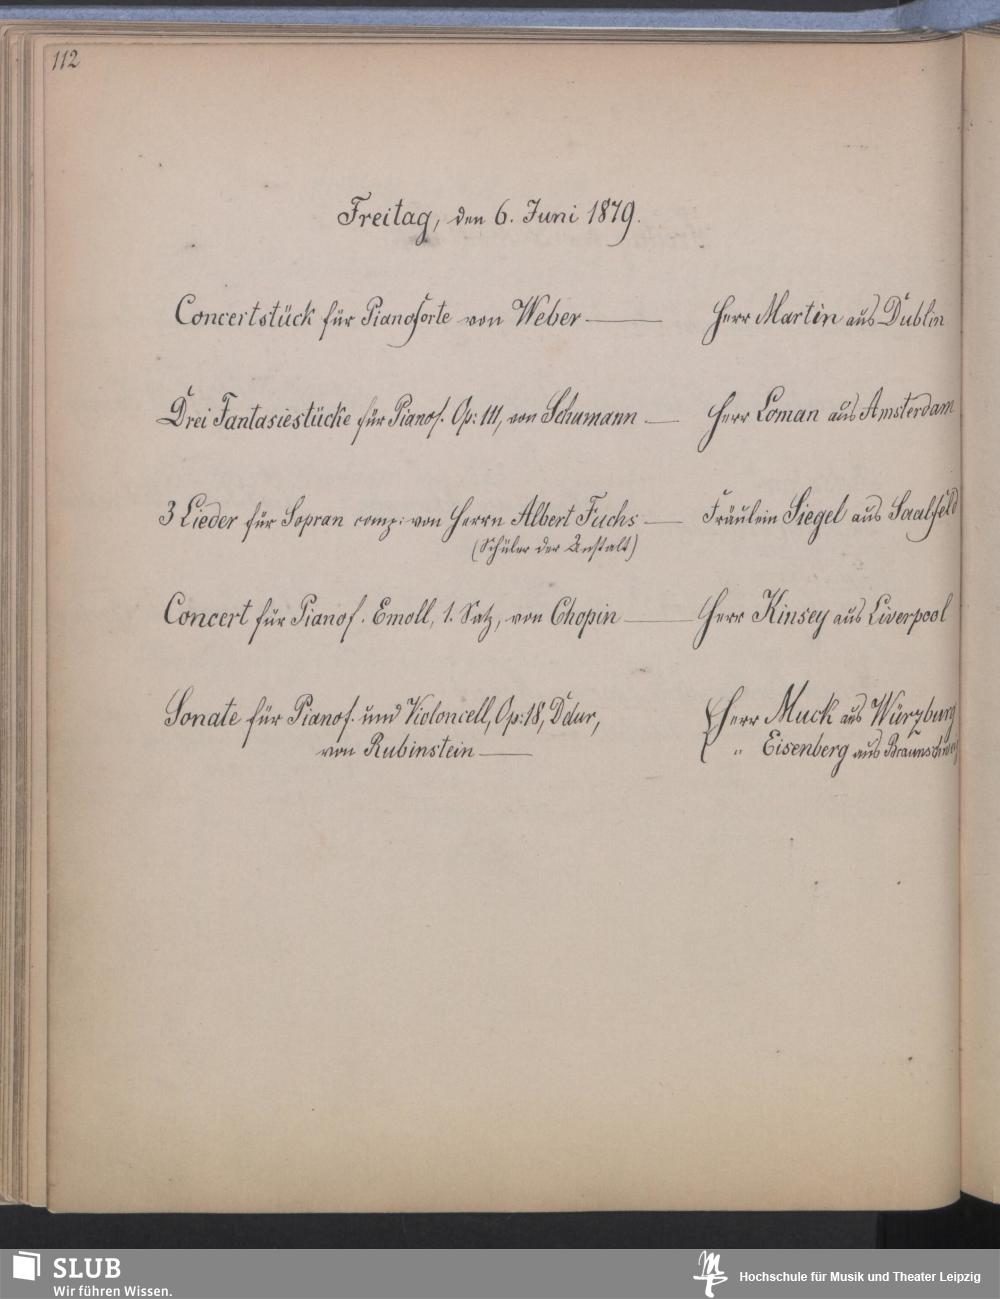 112
Freitag, den 6. Juni 1879.
Concertstück für Pianoforte von Weber — Herr Martin aus Dublin
Drei Fantasiestücke für Pianof. Op: 111, von Schumann — Herr Loman aus Amsterdam
3 Lieder für Sopran comp: von Herrn Albert Fuchs — Fräulein Siegel aus Saalfeld
(Schüler der Anstalt)
Concert für Pianof. Emoll, 1. Satz, von Chopin — Herr Kinsey aus Liverpool
Sonate für Pianof. und Violoncell, Op: 18, Ddur, Herr Muck aus Würzburg
von Rubinstein — " Eisenberg aus Braunschweig
SLUB
Wir führen Wissen.
Hochschule für Musik und Theater Leipzig